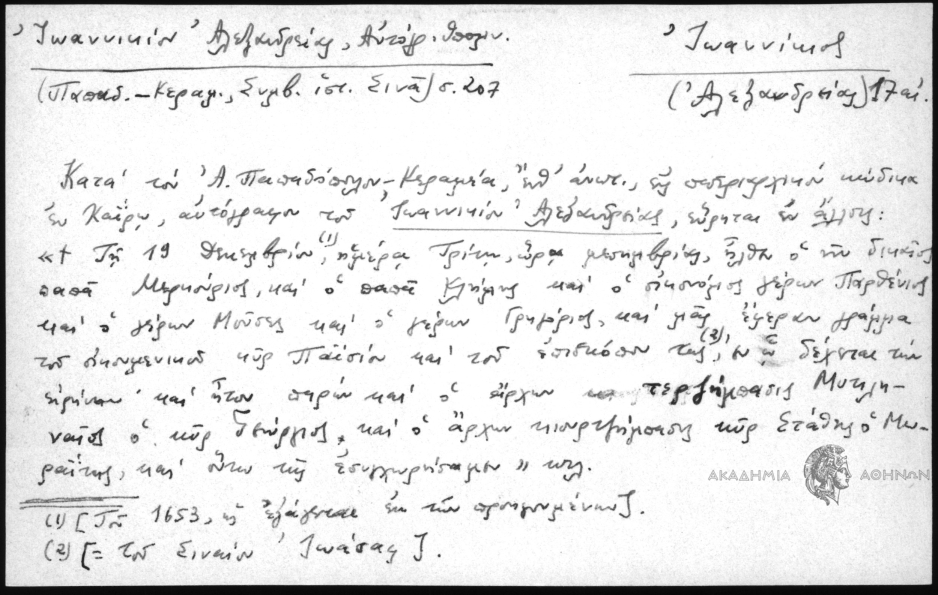 Ἰωαννικίου Ἀλεξανδρείας, Αὐτόγρ. Ἰωαννίκιος
(Παπαδ.–Κεραμ., Συμβ. ἱστ. Σινᾶ) σ. 207 (Ἀλεξανδρείας) 17 αἰ.
Κατὰ τὸν Ἀ. Παπαδόπουλον–Κεραμέα, ἔνθ' ἀνωτ., εἰς πατριαρχικὸν κώδικα
ἐν Καΐρῳ, αὐτόγραφον τοῦ Ἰωαννικίου Ἀλεξανδρείας, εὕρηται ἐν ἄλλοις:
«† Τῇ 19 Δεκεμβρίου (1), ἡμέρᾳ Τρίτῃ, ὥρᾳ μεσημβρίας, ἦλθε ὁ νῦν δικαῖος
παπᾶ Μερκούριος, καὶ ὁ παπᾶ Κλήμης καὶ ὁ οἰκονόμος γέρων Παρθένιος
καὶ ὁ γέρων Μοϋσῆς καὶ ὁ γέρων Γρηγόριος, καὶ μᾶς ἔφεραν γράμμα
τοῦ οἰκουμενικοῦ κὺρ Παϊσίου καὶ τοῦ ἐπισκόπου τῆς (2), ἐν ᾧ δέχεται τὴν
εἰρήνην· καὶ ἦτον παρὼν καὶ ὁ ἄρχων τερζήμπασις Μυτιλη-
ναῖος ὁ κὺρ Γεώργιος, καὶ ὁ ἄρχων κιουρτζήμπασης κὺρ Στάθης ὁ Μω-
ραΐτης, καὶ οὕτω τῆς ἐσυγχωρήσαμεν» κτλ.
(1) [Τοῦ 1653, ὡς ἐξάγεται ἐκ τῶν προηγουμένων].
(2) [= τοῦ Σιναίου Ἰωάσαφ].
ΑΚΑΔΗΜΙΑ ΑΘΗΝΩΝ